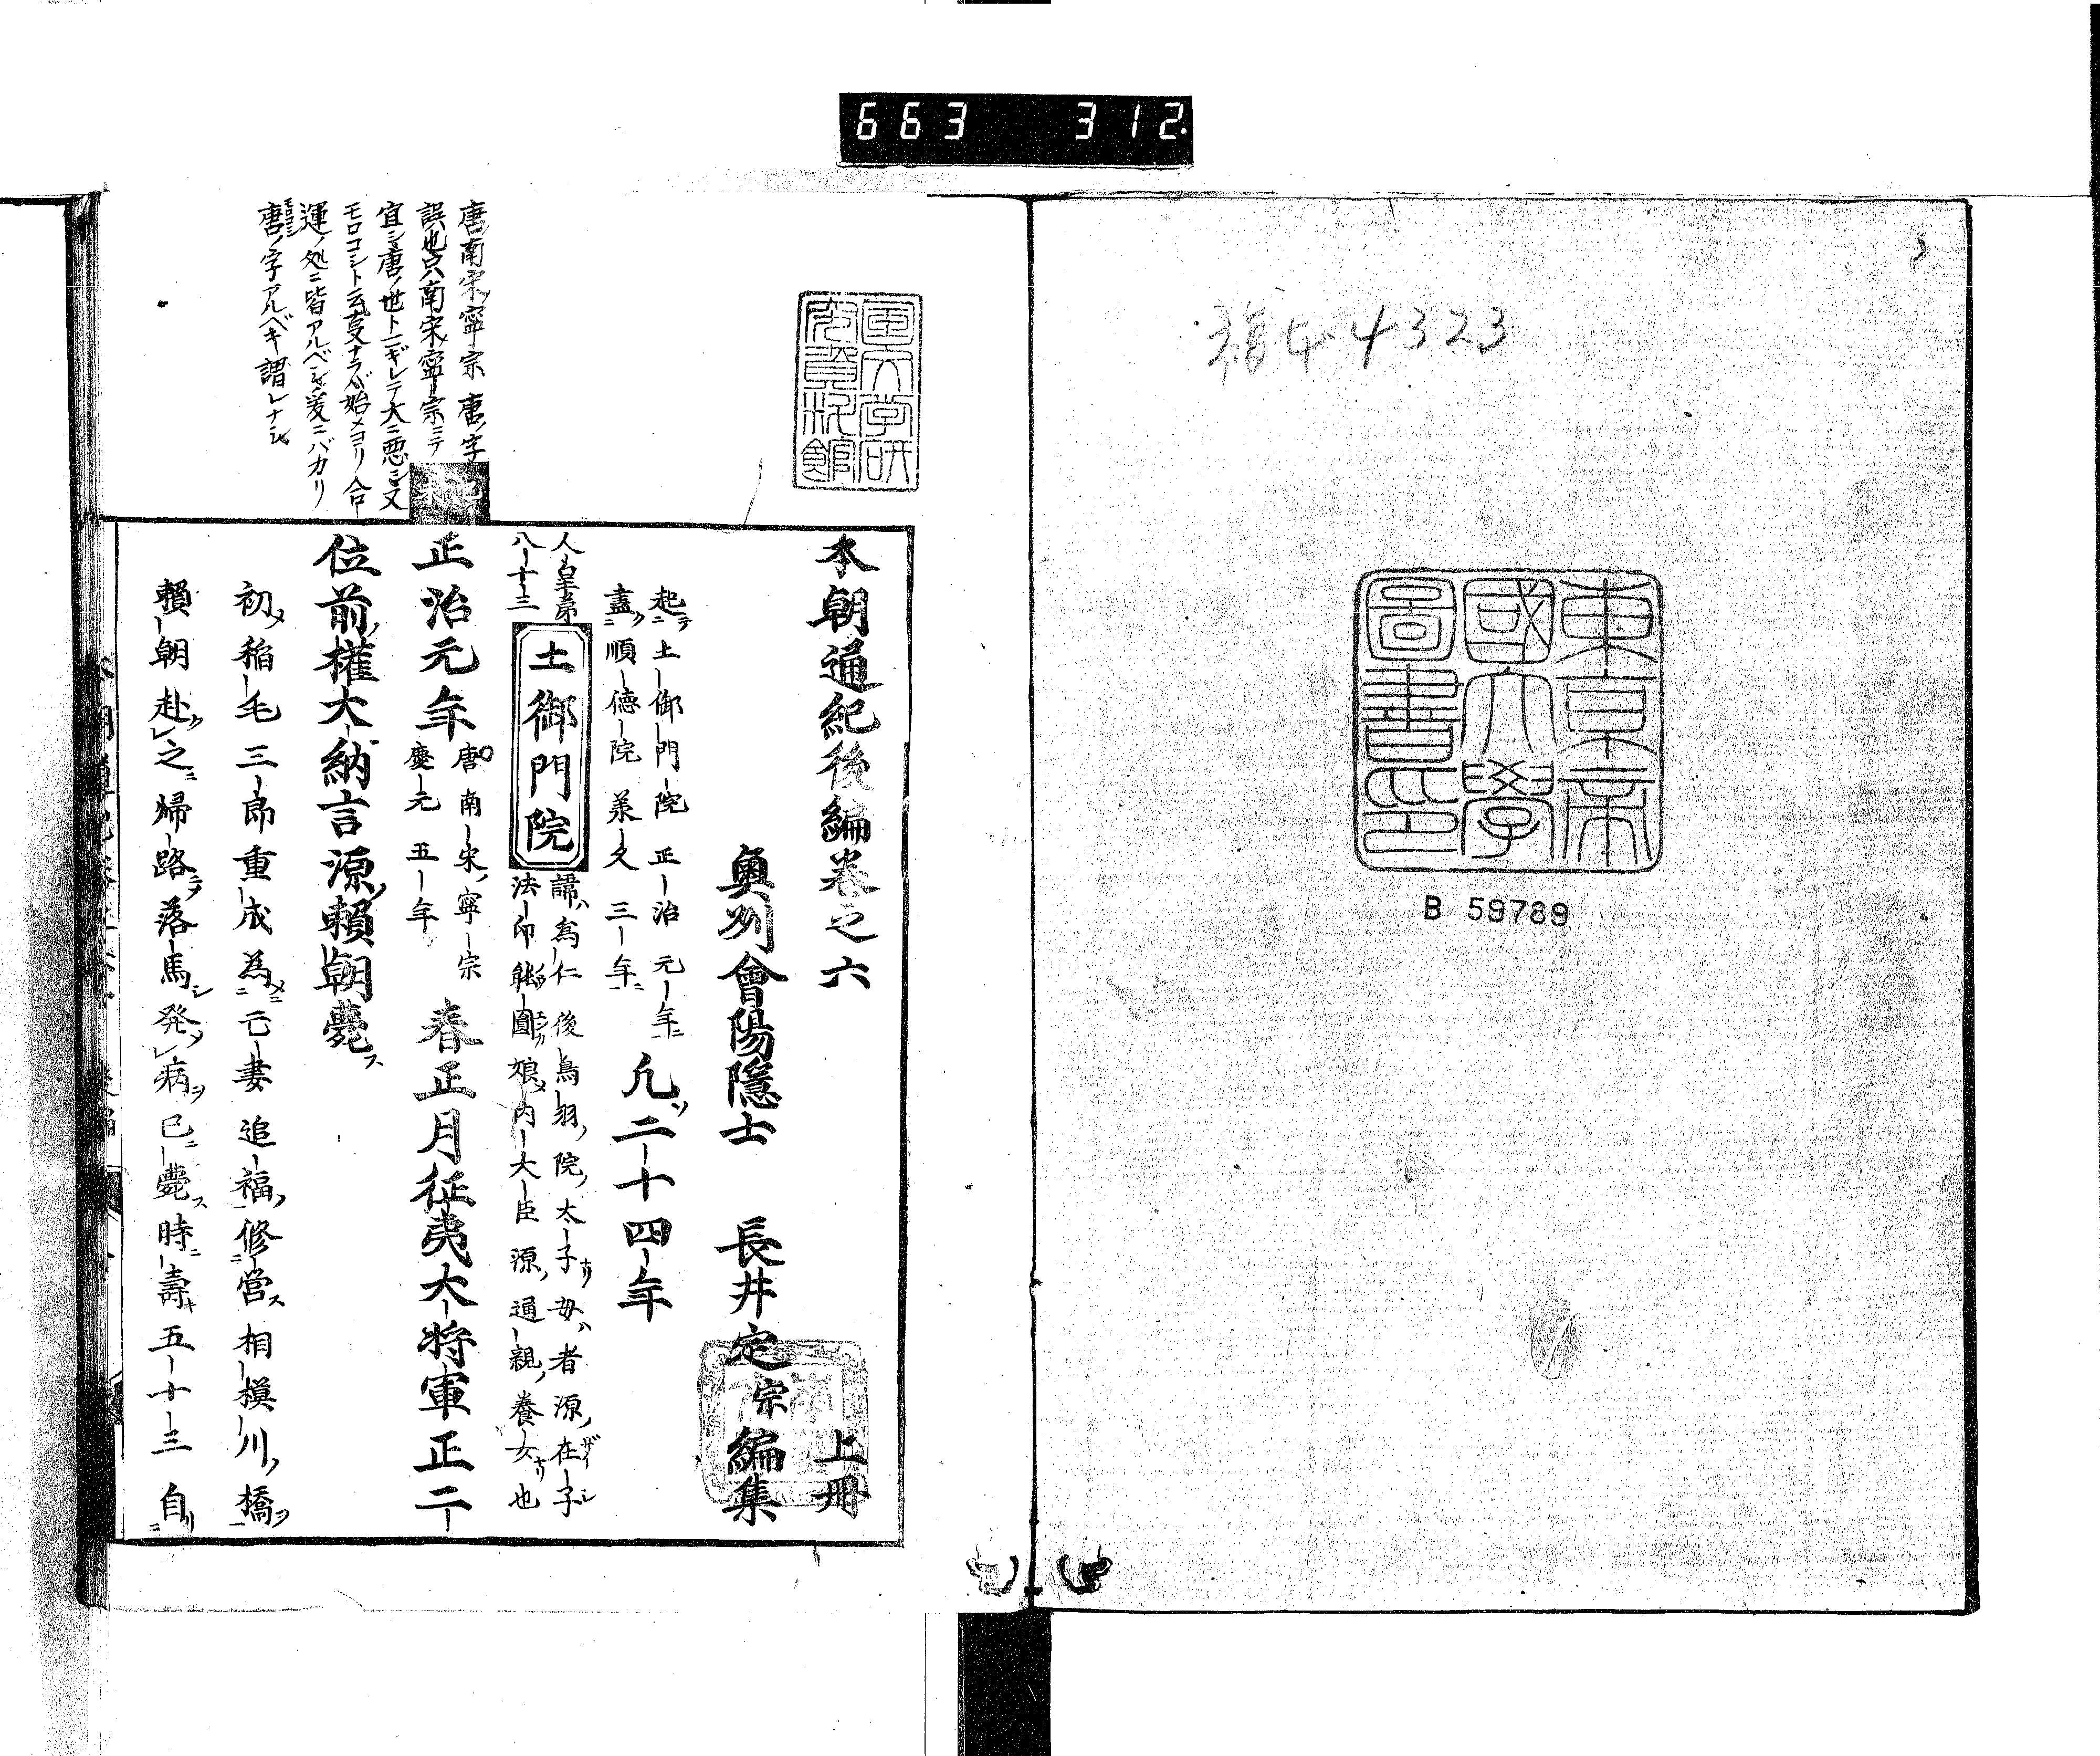 663 312
3
4323
東京帝
國大學
圖書印
B 59789
国文学研
究資料館
唐南宋ノ寧宗唐ノ字
誤也只南宋寧宗ニテ
宜シ唐ノ世トニギレテ大ニ悪シ又
モロコシト云夏ナラバ始メヨリ合
運ノ処ニ皆アルベシ爰ニバカリ
唐ノ字アルベキ謂レナシ
本朝通紀後編卷之六 上冊
奥州會陽隱士 長井定宗編集
起土御門院正治元年
盡順德院羕久三年
凡二十四年
人皇第
八十三
土御門院
諱ハ為仁後鳥羽ノ院ノ太子ナリ母ハ者源ノ在子
法印能圓娘内大臣源ノ通親ノ養女ナリ也
正治元年
唐南宋ノ寧宗
慶元五年
春正月征夷大將軍正二
位前ノ權大納言源ノ頼朝薨ス
初メ稲毛三郎重成為ニ亡妻追福ノ修営ス相模川ノ橋ヲ
頼朝赴之歸路落馬シ発病已ニ薨ス時ニ壽五十三自